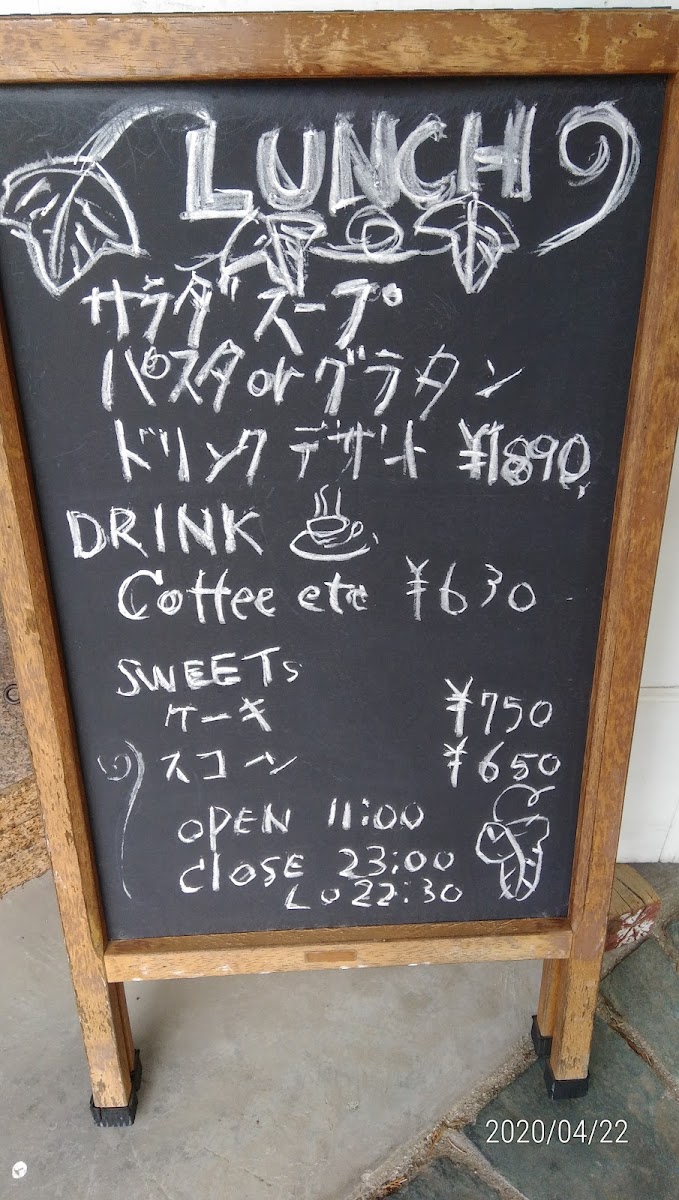 LUNCH
サラダ スープ
パスタ or グラタン
ドリンク デザート ¥1890
DRINK
Coffee etc ¥630
SWEETS
ケーキ ¥750
スコーン ¥650
OPEN 11:00
close 23:00
Lo 22:30
2020/04/22